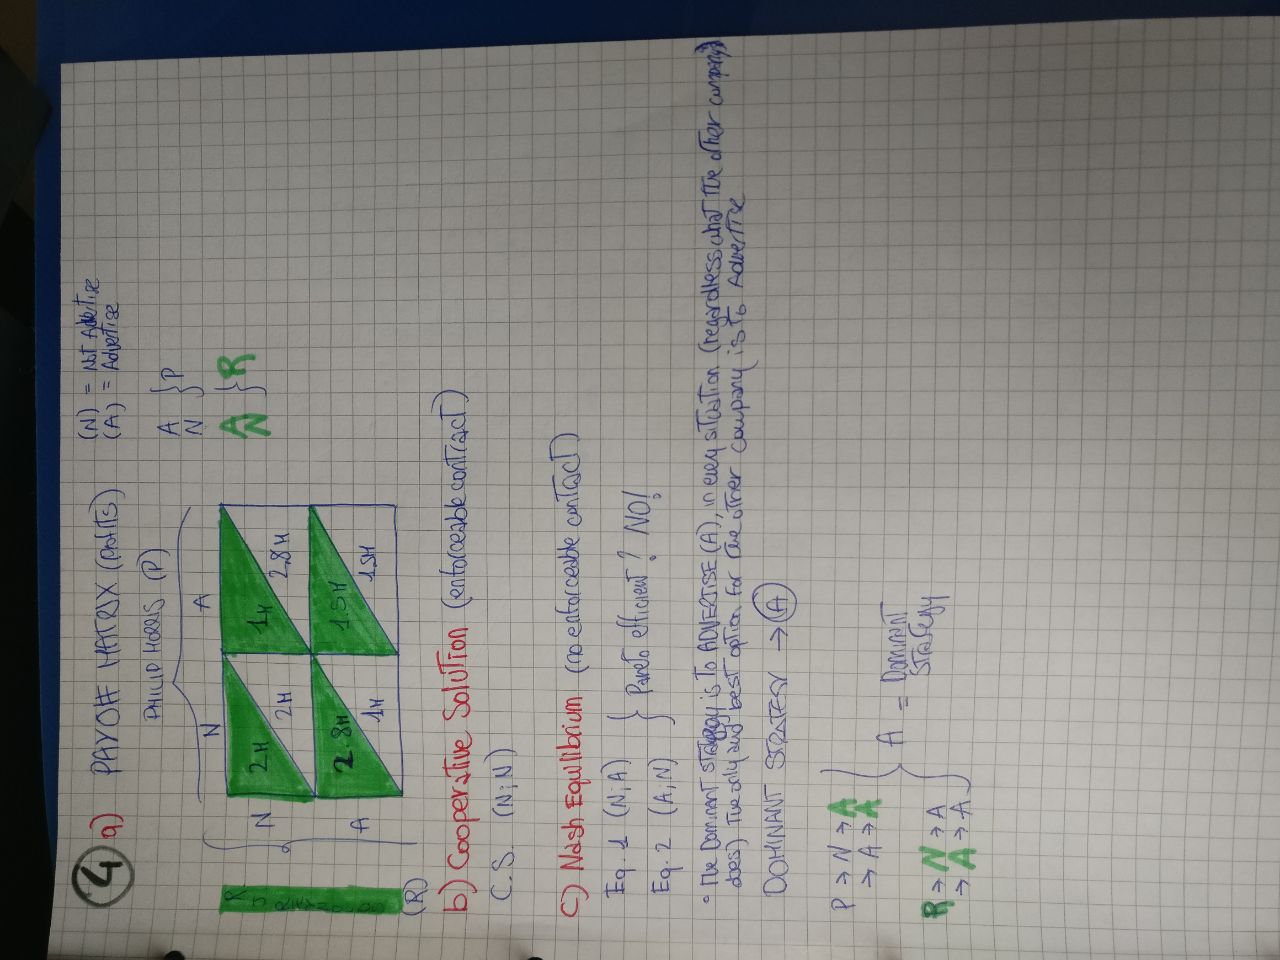 4 a) PAYOFF MATRIX (Profits)
(N) = Not Advertise
(A) = Advertise
PHILIP MORRIS (P)
A
N } P
A
N } R
N A
N 2M 2M 1M 2.8M
A 2.8M 1M 1.5M 1.5M
(R)
b) Cooperative Solution (enforceable contract)
C.S. (N;N)
c) Nash Equilibrium (no enforceable contract)
Eq. 1 (N;A)
Eq. 2 (A;N) } Pareto efficient? NO!
• The Dominant strategy is to ADVERTISE (A), in every situation (regardless what the other company
does) The only and best option for the other company is to Advertise
DOMINANT STRATEGY → A
P → N → A
→ A → A
A = Dominant
Strategy
R → N → A
→ A → A